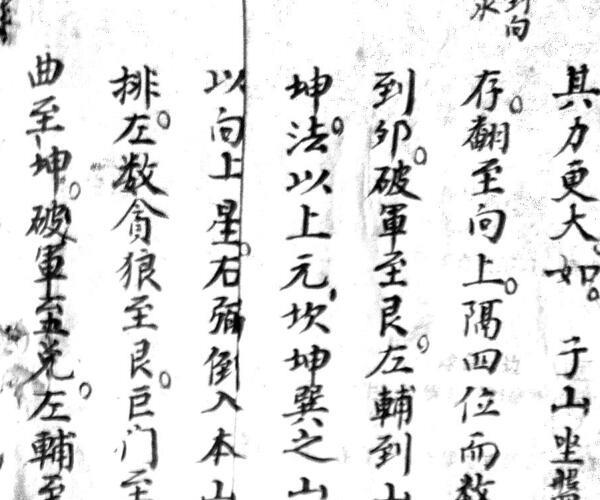 其力更大如。子山坐盤
存。翻至向上。隔四位而数
到卯。破軍至艮。左輔到山
坤法。以上元坎坤巽之山
以向上星。右弼倒入本山
排左。数貪狼至艮。巨门至
曲至坤。破軍至兌。左輔至